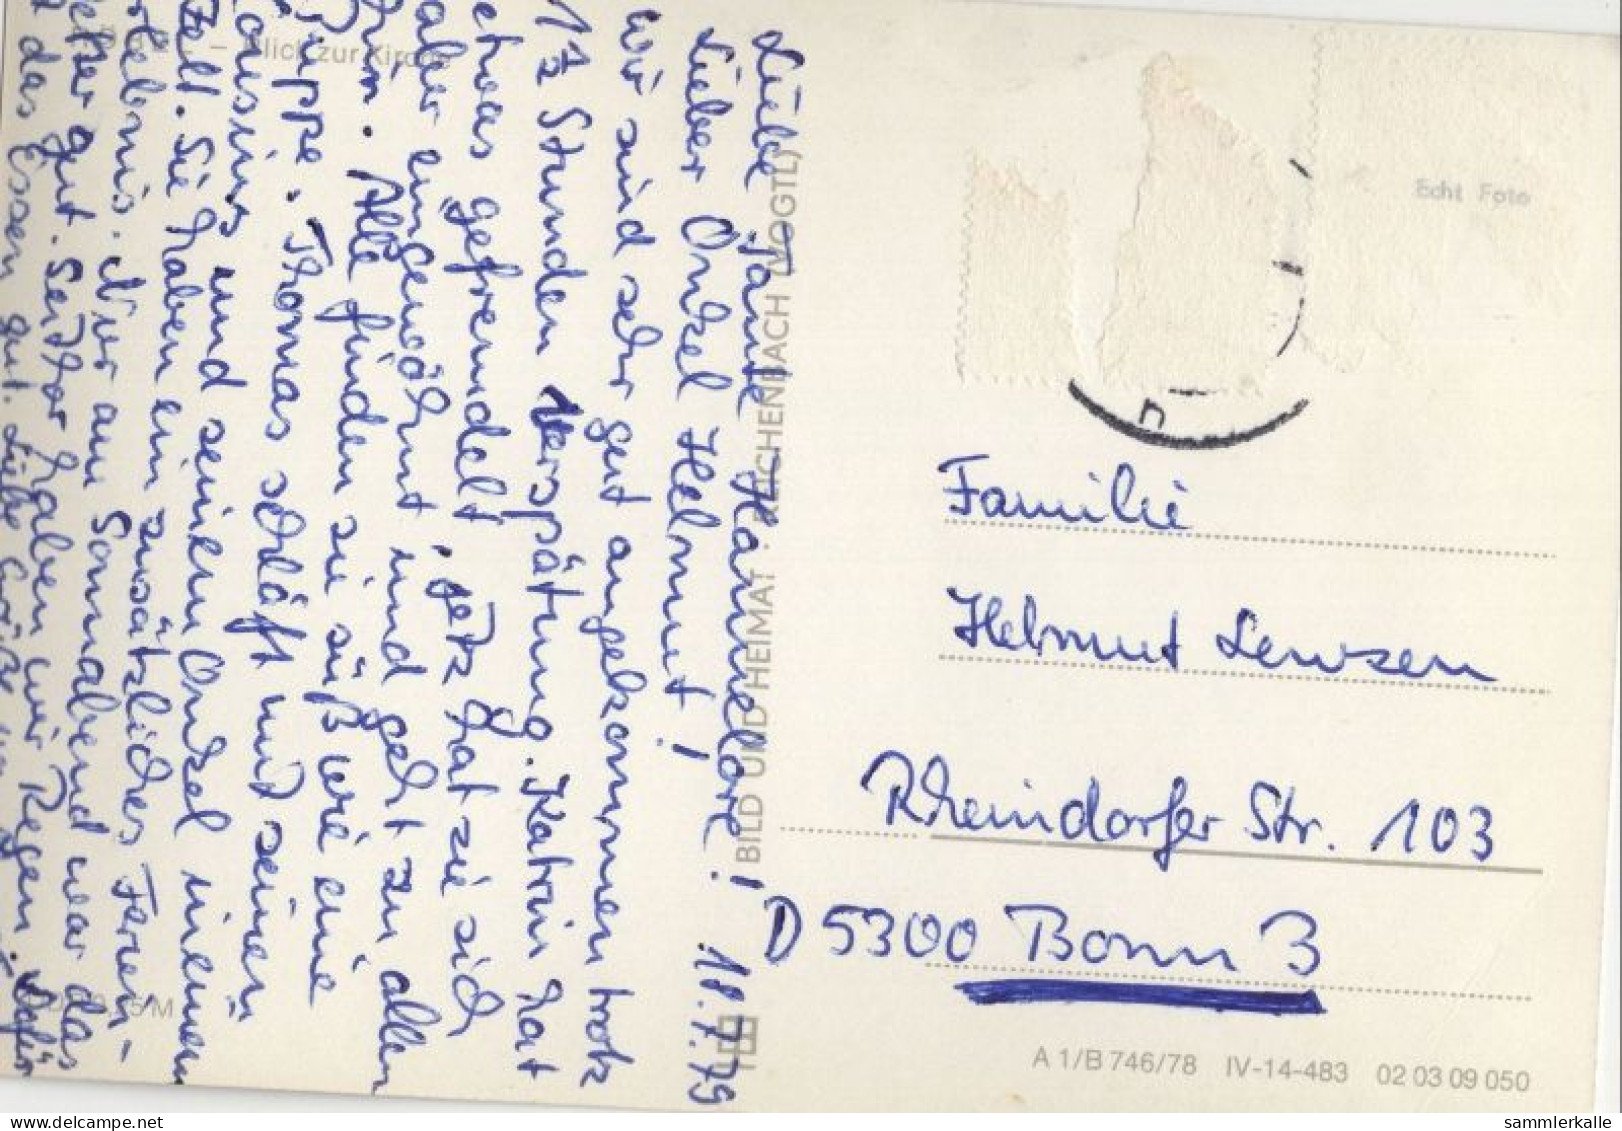 Liebe Tante Hannelore!
18.7.79
Lieber Onkel Helmut!
wir sind sehr gut angekommen trotz
1½ Stunden Verspätung. Katrin hat
etwas gefremdelt, jetz hat sie sich
aber eingewöhnt und geht zu allen
hin. Alle finden sie süß wie eine
Puppe. Thomas schläft mit seinen
Cousins und seinem Onkel in einem
Zelt. Sie haben ein zusätzliches Ferien-
erlebnis. Nur am Sonnabend war das
Wetter gut. Seither haben wir Regen. Dafür
das Essen gut. Liebe Grüße
Blick zur Kirche
BILD UND HEIMAT · REICHENBACH (VOGTL)
Echt Foto
n
Familie
Helmut Lewzen
Rheindorfer Str. 103
D 5300 Bonn 3
A 1/B 746/78 IV-14-483 02 03 09 050
sammlerkalle